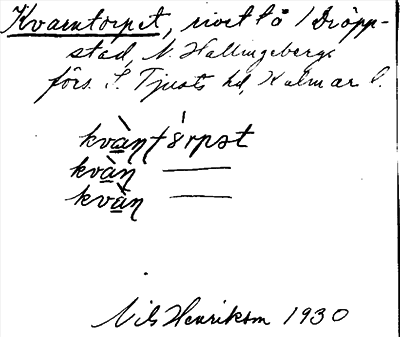 Kvarntorpet, rivet få / Dröpp-
stad, N. Hallingebergs
förs. S. Tjusts hd, Kalmar l.
kvàn̩tórpət
kvàn̩ ——
kvàn̩ ——
Nils Henrikson 1930